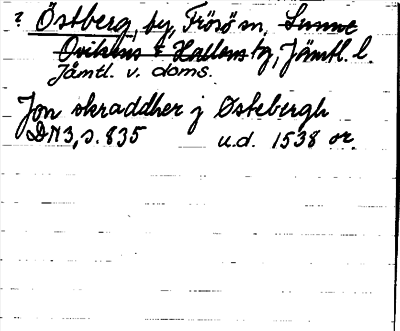 ? Östberg, by, Frösö sn, Sunne
Ovikens & Hallens tg, Jämtl. l.
Jämtl. v. doms.
Jon skraddher j Østebergh
DN3, s. 835 u.d. 1538 or.